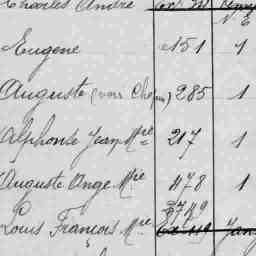 Charles André
Eugène 151 1
Auguste (voir Chopin) 285 1
Alphonse Jean Mie 217 1
Auguste Ange Mie 478 1
3749
Louis François Mie Jan